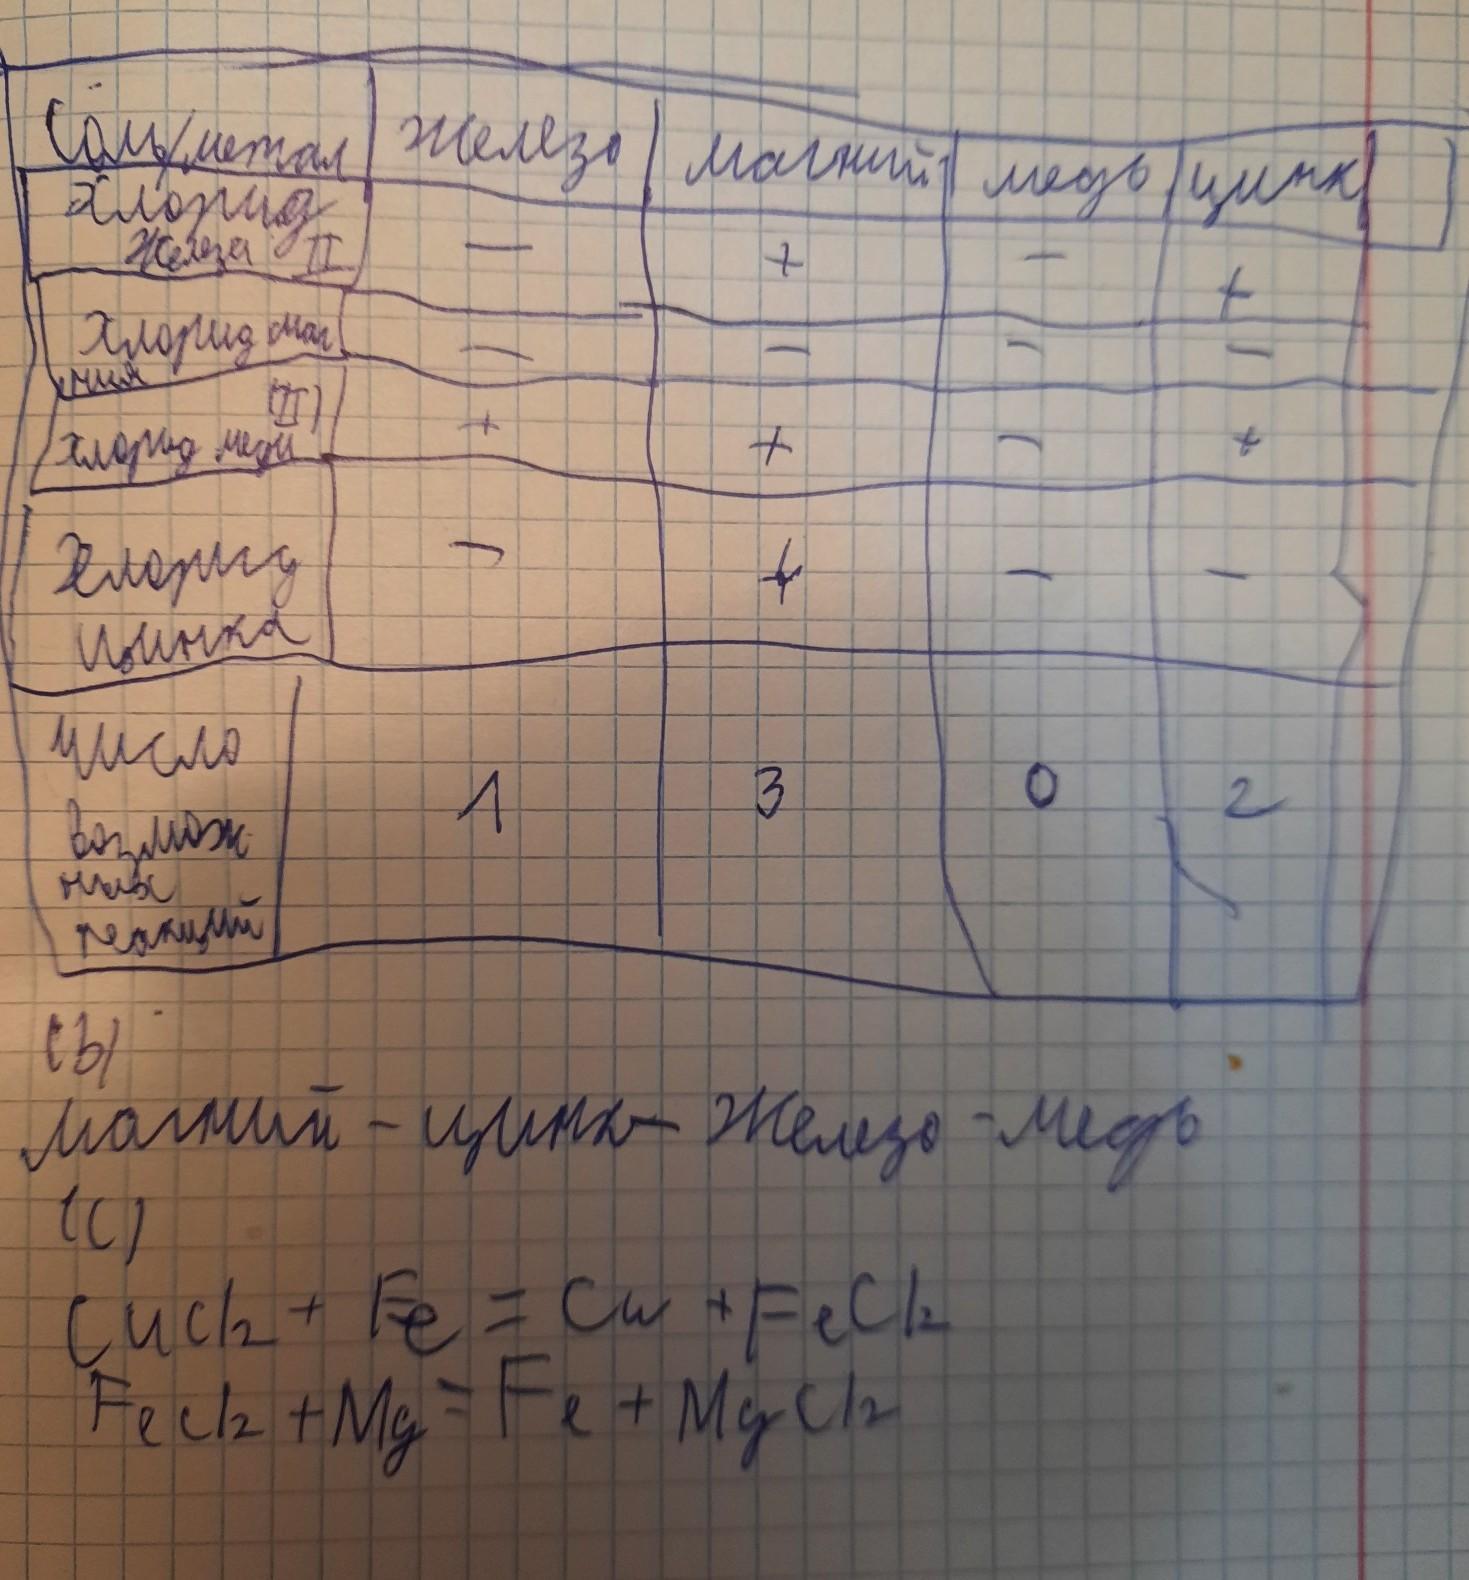 Соль/метал железо магний медь цинк
Хлорид
железа II — + — +
Хлорид маг
ния — — — —
(II)
хлорид меди + + — +
Хлорид
цинка — + — —
число
возмож 1 3 0 2
ных
реакций
(b)
магний - цинк - железо - медь
(c)
CuCl2 + Fe = Cu + FeCl2
FeCl2 + Mg = Fe + MgCl2